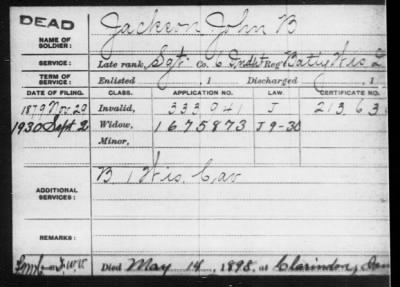 DEAD
Jackson, John B
NAME OF SOLDIER:
SERVICE: Late rank, Sgt. Co. 6 Indpt Reg't Batty Wis L
TERM OF SERVICE: Enlisted , 1 Discharged , 1
DATE OF FILING. CLASS. APPLICATION NO. LAW. CERTIFICATE NO.
1879 Nov. 20 Invalid, 333041 J 213.631
1930 Sept 2 Widow, 1675873 J 9-30
Minor,
B. 1 Wis. Cav
ADDITIONAL SERVICES:
REMARKS:
Died May 14, 1898, at Clarindon,